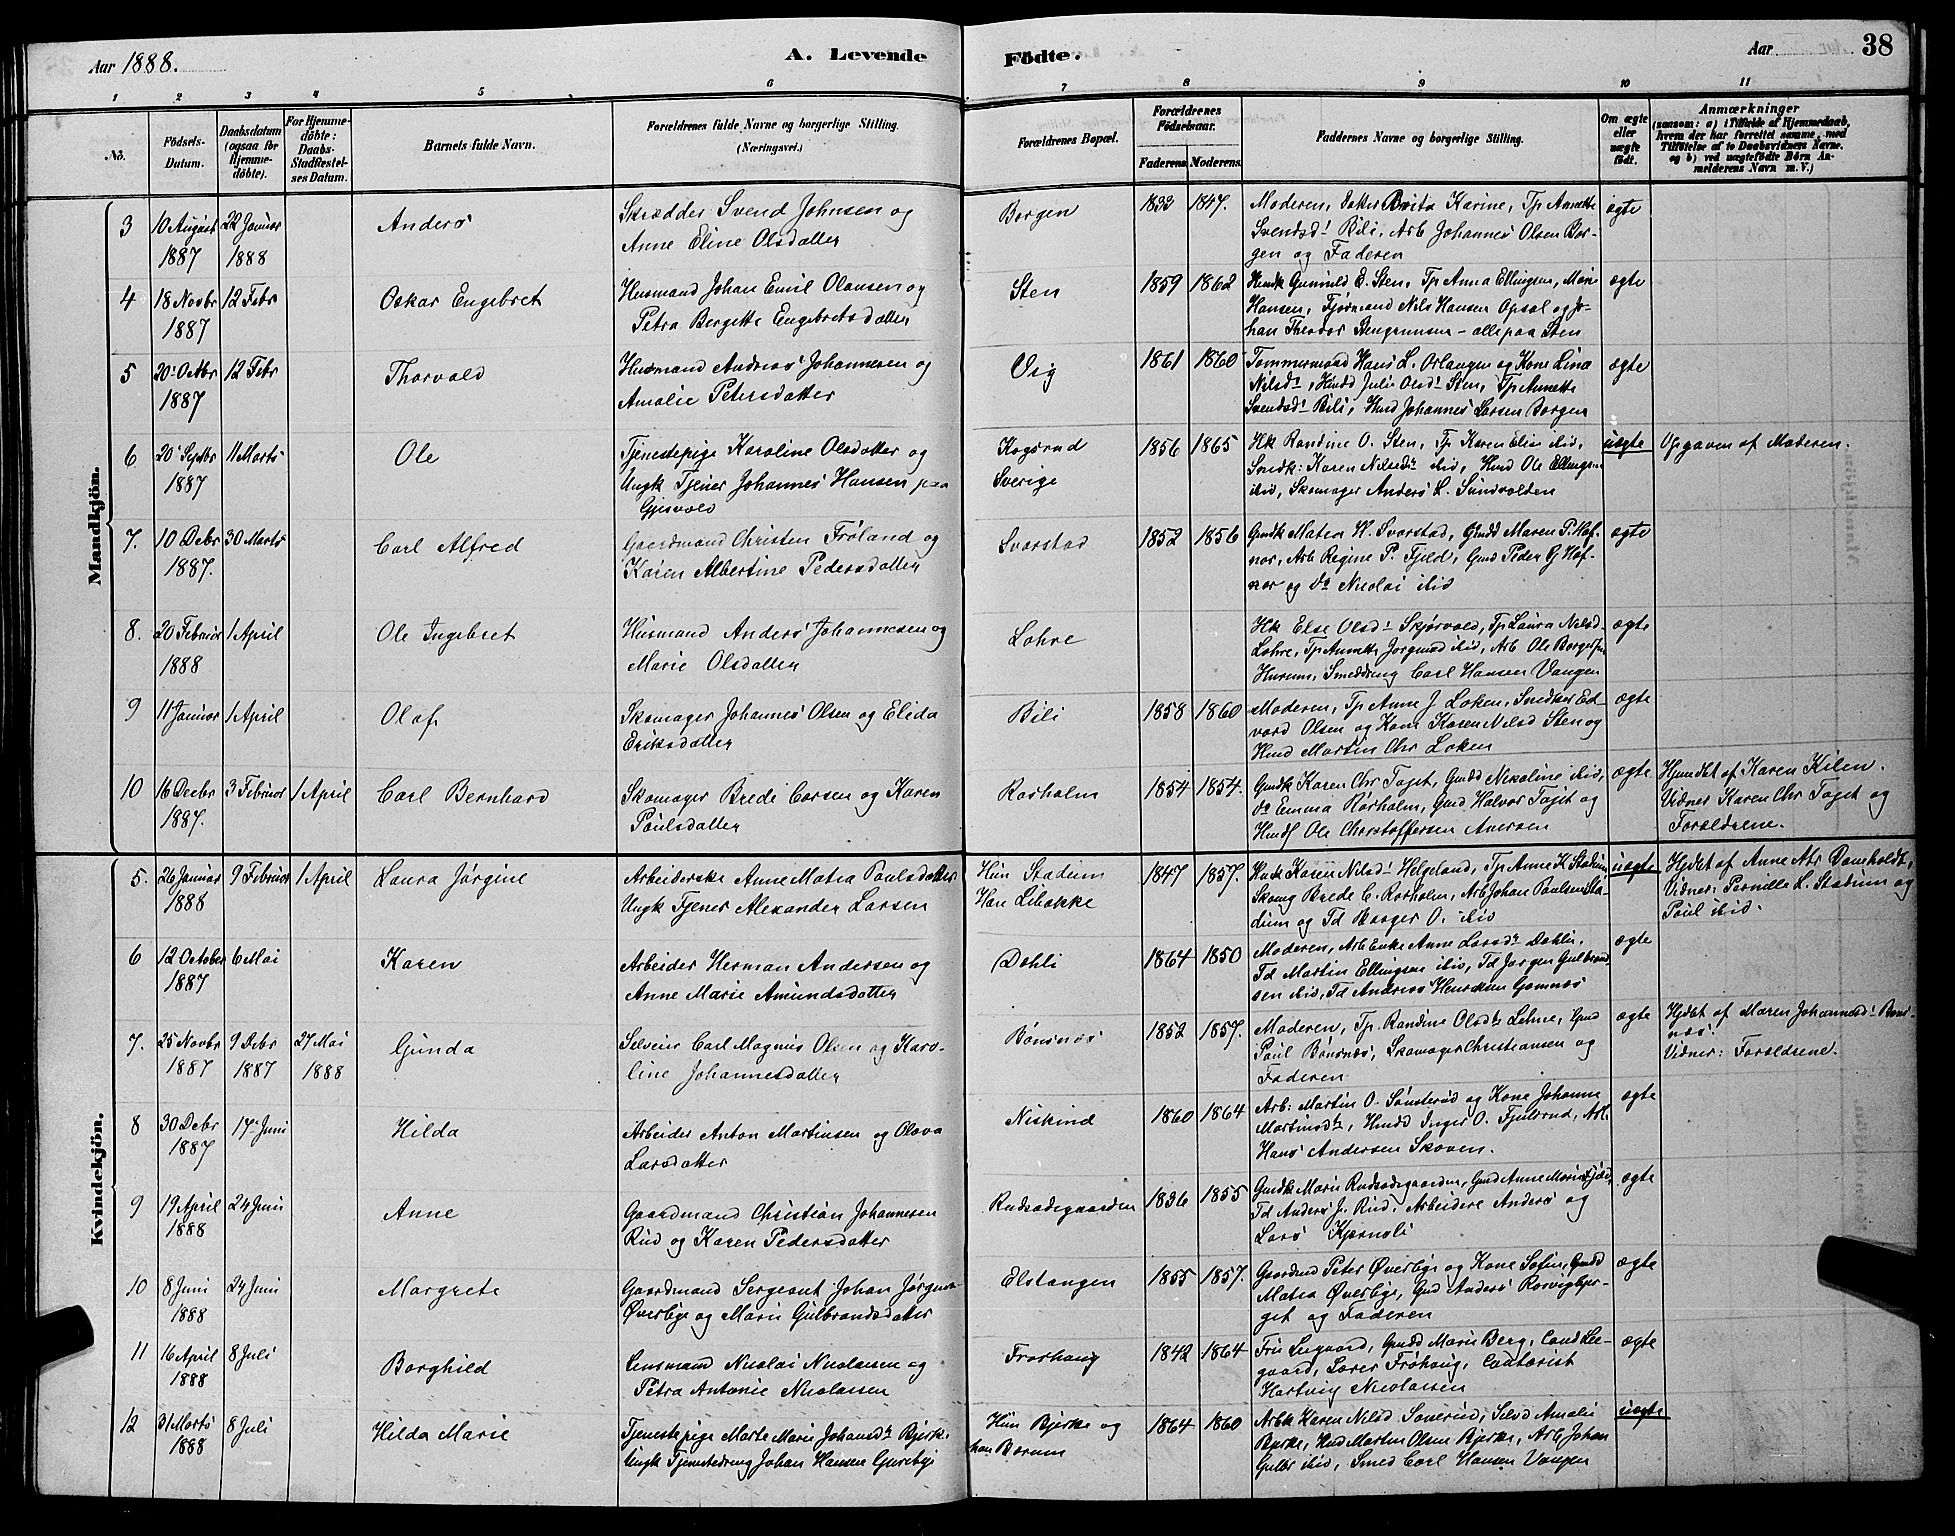 Aar 1888.
A. Levende
Födte.
Aar
38
1 2 3 4 5 6 7 8 9 10 11
No.
Födsels-Datum.
Daabsdatum (ogsaa för Hjemme-döbte).
For Hjemme-döbte: Daabs-Stadfæstel-ses Datum.
Barnets fulde Navn.
Forældrenes fulde Navne og borgerlige Stilling. (Næringsvei.)
Forældrenes Bopæl.
Forældrenes Födselsaar.
Faderens. Moderens.
Faddernes Navne og borgerlige Stilling.
Om ægte eller uægte födt.
Anmærkninger
(saasom: a) i Tilfælde af Hjemmedaab, hvem der har forrettet samme, med Tilföielse af to Daabsvidners Navne, og b) ved uægtefödte Börn Anmelderens Navn m. V.)
Mandkjön.
3 10 August 1887 22 Januar 1888 Anders
Skrædder Svend Johnsen og
Anne Eline Olsdatter
Borgen 1833 1847.
Moderen, Datter Berita Karine, Tp Annette
Svendsdr Bili, Arb Johannes Olsen Bor-
gen og Faderen
ægte
4 18 Novbr 1887 12 Febr Oskar Engebret
Husmand Johan Emil Olausen og
Petra Bergette Engebretsdatter
Sten 1859 1862
Hmdk Gunnild E. Sten, Tp Anna Ellingsen,
Hansen, Nils Hansen Opsal og Jo-
han Theodor - alle paa Sten
ægte
5 20 Octbr 1887 12 Febr Thorvald
Husmand Andreas Johannesen og
Amalie Petersdatter
Vig 1861 1860
Tømmermand Hans L. Orlangen og Kone Lina
Nilsdr, Hmdd Julie Olsdr Sten, Tp Annette
Svendsdr Bili, Hmd Johannes Larsen Borgen
ægte
6 20 Septbr 1887 11 Marts Ole
Tjenestepige Karoline Olsdatter og
Ungk Tjener Johannes Hansen paa
Gjesvold
Kogsrud
Sverige
1856 1865
Hk Randine O. Sten, Tp Karen Elin ibid,
Smedk: Karen Nilsdr ibid, Hmd Ole Ellingsen
ibid, Skomager Anders L. Sundvolden
uægte
Opgaven af Moderen.
7. 10 Debr 1887. 30 Marts Carl Alfred
Gaardmand Christen Frøland og
Karen Albertine Pedersdatter
Svarstad 1852 1856
Gmdk Matea H. Svarstad, Gmdd Maren P. Haf-
nor, Arb Regine P. Fjeld, Gmd Peder G Haf-
nor og do Nicolai ibid
ægte
8. 20 Februar 1888 1 April Ole Ingebret
Husmand Anders Johannesen og
Marie Olsdatter
Lohre
Hk Else Olsdr Skjørvold, Tp Laura Nilsd
Lohre, Tp Annette ibid, Arb Ole
Hurum, Smeddreng Carl Hansen Vangen
ægte
9 11 Januar 1 April Olaf
Skomager Johannes Olsen og Elida
Eriksdatter
Bili 1858 1860
Moderen, Tp Anne J Loken, Snedker Ed-
vard Olsen og Kone Karen Nilsd Sten og
Hmd Martin Chr Loken
ægte
10 16 Decbr 1887. 3 Februar 1 April Carl Bernhard
Skomager Brede Carsen og Karen
Paulsdatter
Rørholm 1854 1854.
Gmdk Karen Chr Taget, Gmdd Nikoline ibid,
do Emma Rørholm, Gmd Halvor Taget og
Hmdf Ole Christoffersen
ægte
Hjemdøbt af Karen Kilen.
Vidner Karen Chr Taget og
Forældrene.
Kvindekjön.
5. 26 Januar 1888 9 Februar 1 April Laura Jørgine
Arbeiderske Anne Matea Paulsdatter
Ungk Tjener Alexander Larsen
Hun Stadum
Han Libakke
1847 1857.
Hmdk Karen Nilsdr Helgeland, Tp Anne K Stadum
Skomg Brede C. Rørholm, Arb Johan Paulsen Sta-
dum og Td Borger O. ibid
uægte
Hjdøbt af Anne Domholdt,
Vidner: Pernille L. Stadum og
Paul ibid.
6 12 October 1887 6 Mai Karen
Arbeider Herman Andersen og
Anne Marie Amundsdatter
Dahli 1864 1850
Moderen, Arb Enke Anne Larsdr Dahli,
Td Martin Ellingsen ibid, Td Jørgen Gulbrand-
sen ibid, Td Andreas Henriksen Gomnæs
ægte
7. 25 Novbr 1887 9 Debr 1887 27 Mai 1888 Gunda
Selveier Carl Magnus Olsen og Karo-
line Johannesdatter
Bønsnæs 1852 1857.
Moderen, Tp. Randine Olsdr Lehne, Gmd
Paul Bønsnæs, Skomager Christiansen og
Faderen
ægte
Hjdøbt af Maren Johannesdr Bøns-
næs.
Vidner: Forældrene.
8 30 Debr 1887 17 Juni Hilda
Arbeider Anton Martinsen og Olava
Larsdatter
Niskind 1860 1864
Arb: Martin O. Sønsterød og Kone Johanne
Martinsdr, Hmdd Inger O. Fjulsrud, Arb.
Hans Andersen Skoven.
ægte
9 19 April 1888 24 Juni Anne
Gaardmand Christian Johannesen
Rud og Karen Pedersdatter
Rudsødegaarden 1836 1855
Gmdk Marie Rudsødegaarden, Gmd Anne Marie Fjeld,
Td Anders J. Rud, Arbeidere Anders og
Lars Kjernsli
ægte
10 8 Juni 1888 24 Juni Margrete
Gaardmand Sergeant Johan Jørgensen
Øverbye og Marie Gulbrandsdatter
Elstangen 1855 1857.
Gaardmd Peter Øverbye og Kone Sofie, Gmdd
Matea Øverbye, Gmd Anders Rørvigbjer-
get og Faderen
ægte
11 16 April 1888 8 Juli Borghild
Lensmand Nicolai Nicolaisen og
Petra Antonie Nicolaisen
Frøhaug 1842 1864
Fru Leegaard, Gmdd Marie Berg, Cand Lee-
gaard, Lærer Frøhaug, Contorist
Hartvig Nicolaisen
ægte
12 31 Marts 1888 8 Juli Hilda Marie
Tjenestepige Marte Marie Johansdr Bjerke
Ungk Tjenestedreng Johan Hansen
Hun Bjerke og
han Bærum
1864 1860
Arbk Karen Nilsd Sonerud, Selvd Amalie
Bjerke, Hmd Martin Olsen Bjerke, Arb Johan
Gulbr ibid, Smed Carl Hansen Vangen
uægte